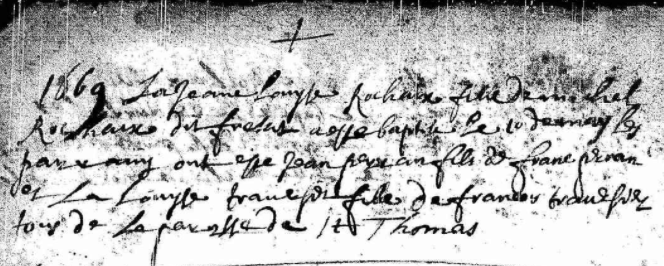 1669 La Jeane Louyse Rochaix fille de michel
Rochaix dit fresat a esse baptise le 10 de may les
parrains ont esse Jean perran fils de franc perran
et La Louyse travesset fille de frances travesset
tous de La parosse de St Thomas